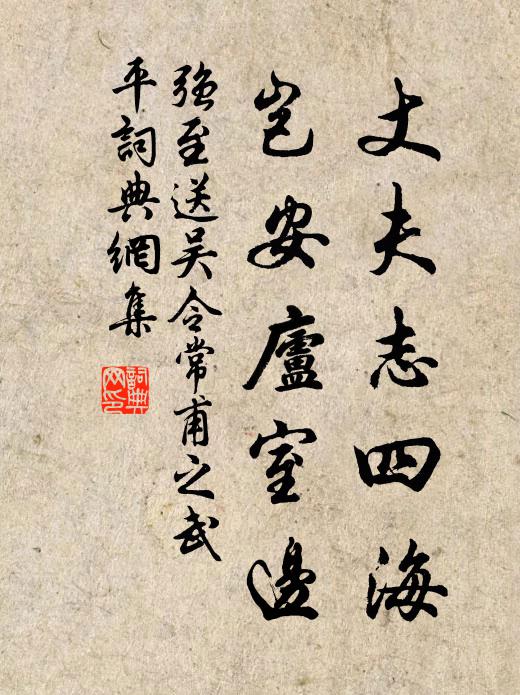 丈夫志四海
豈安廬室邊
強至送吴令常甫之武
平詞典網集
詞典
网印